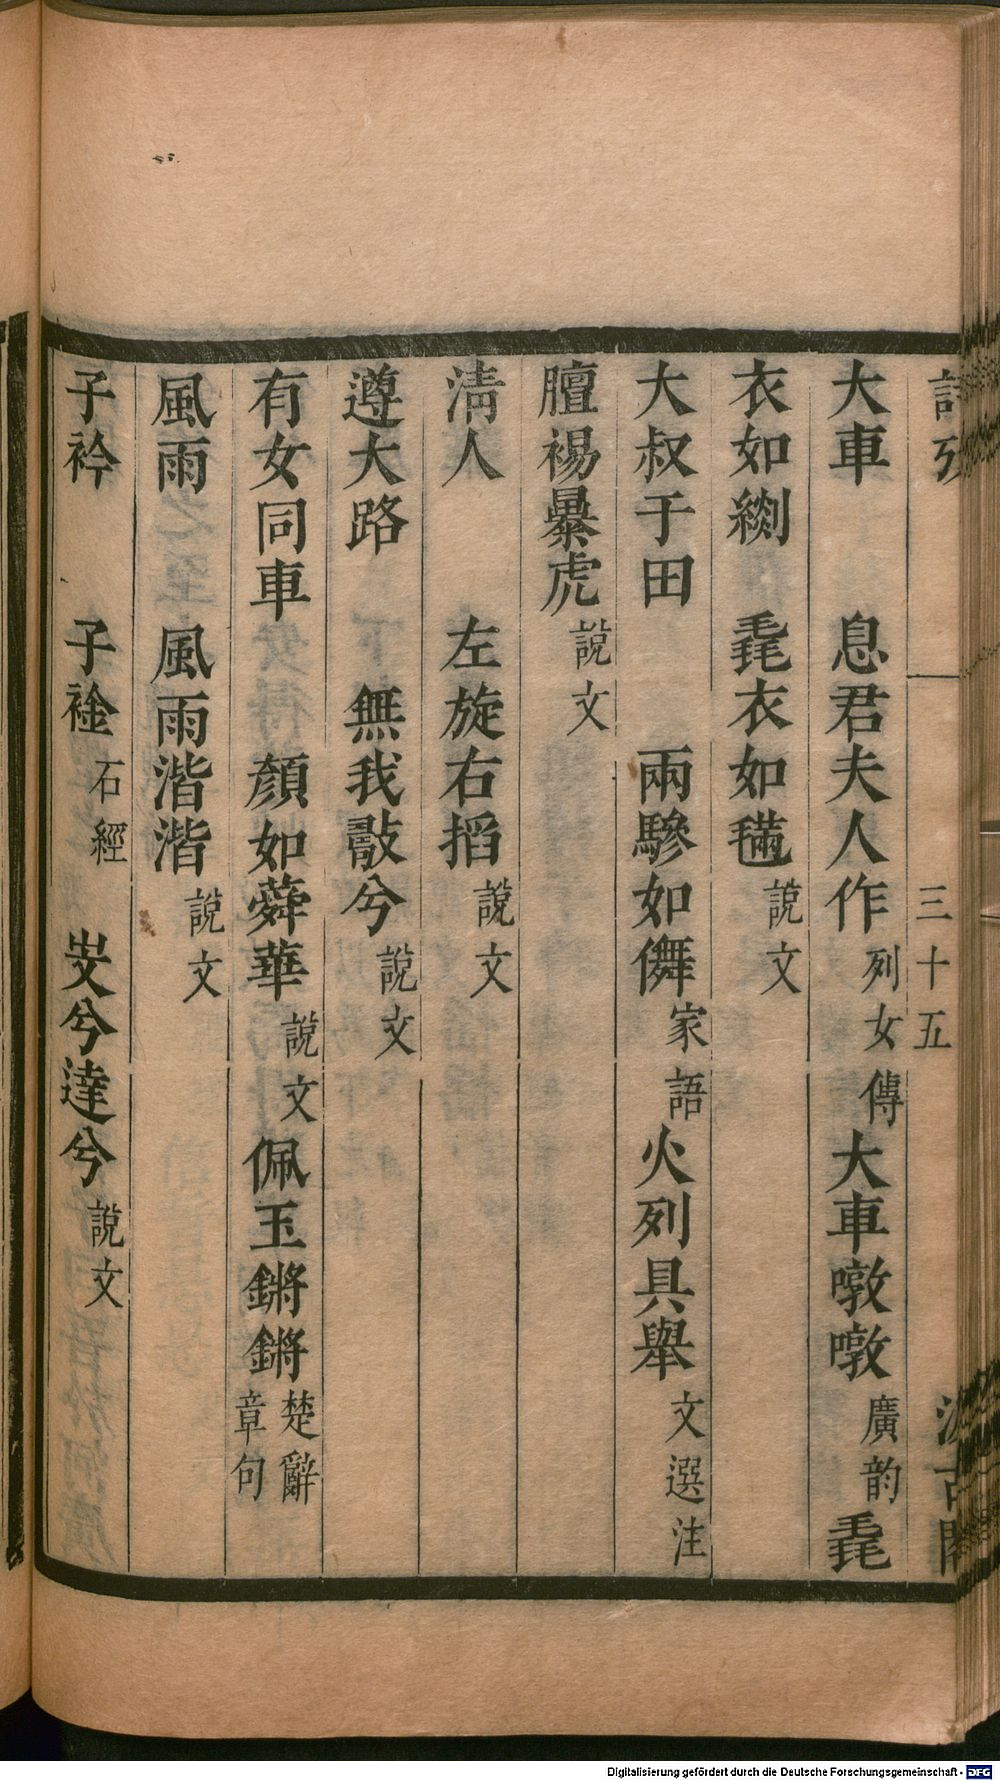 詩攷
三十五
汲古閣
大車 息君夫人作列女傳大車噋噋廣韵毳
衣如緣 毳衣如𣯩說文
大叔于田 兩驂如儛家語火列具舉文選注
膻裼暴虎說文
淸人 左旋右搯說文
遵大路 無我𣀳兮說文
有女同車 顏如蕣華說文佩玉鏘鏘楚辭章句
風雨 風雨湝湝說文
子衿 子䘳石經㞵兮達兮說文
Digitalisierung gefördert durch die Deutsche Forschungsgemeinschaft - DFG